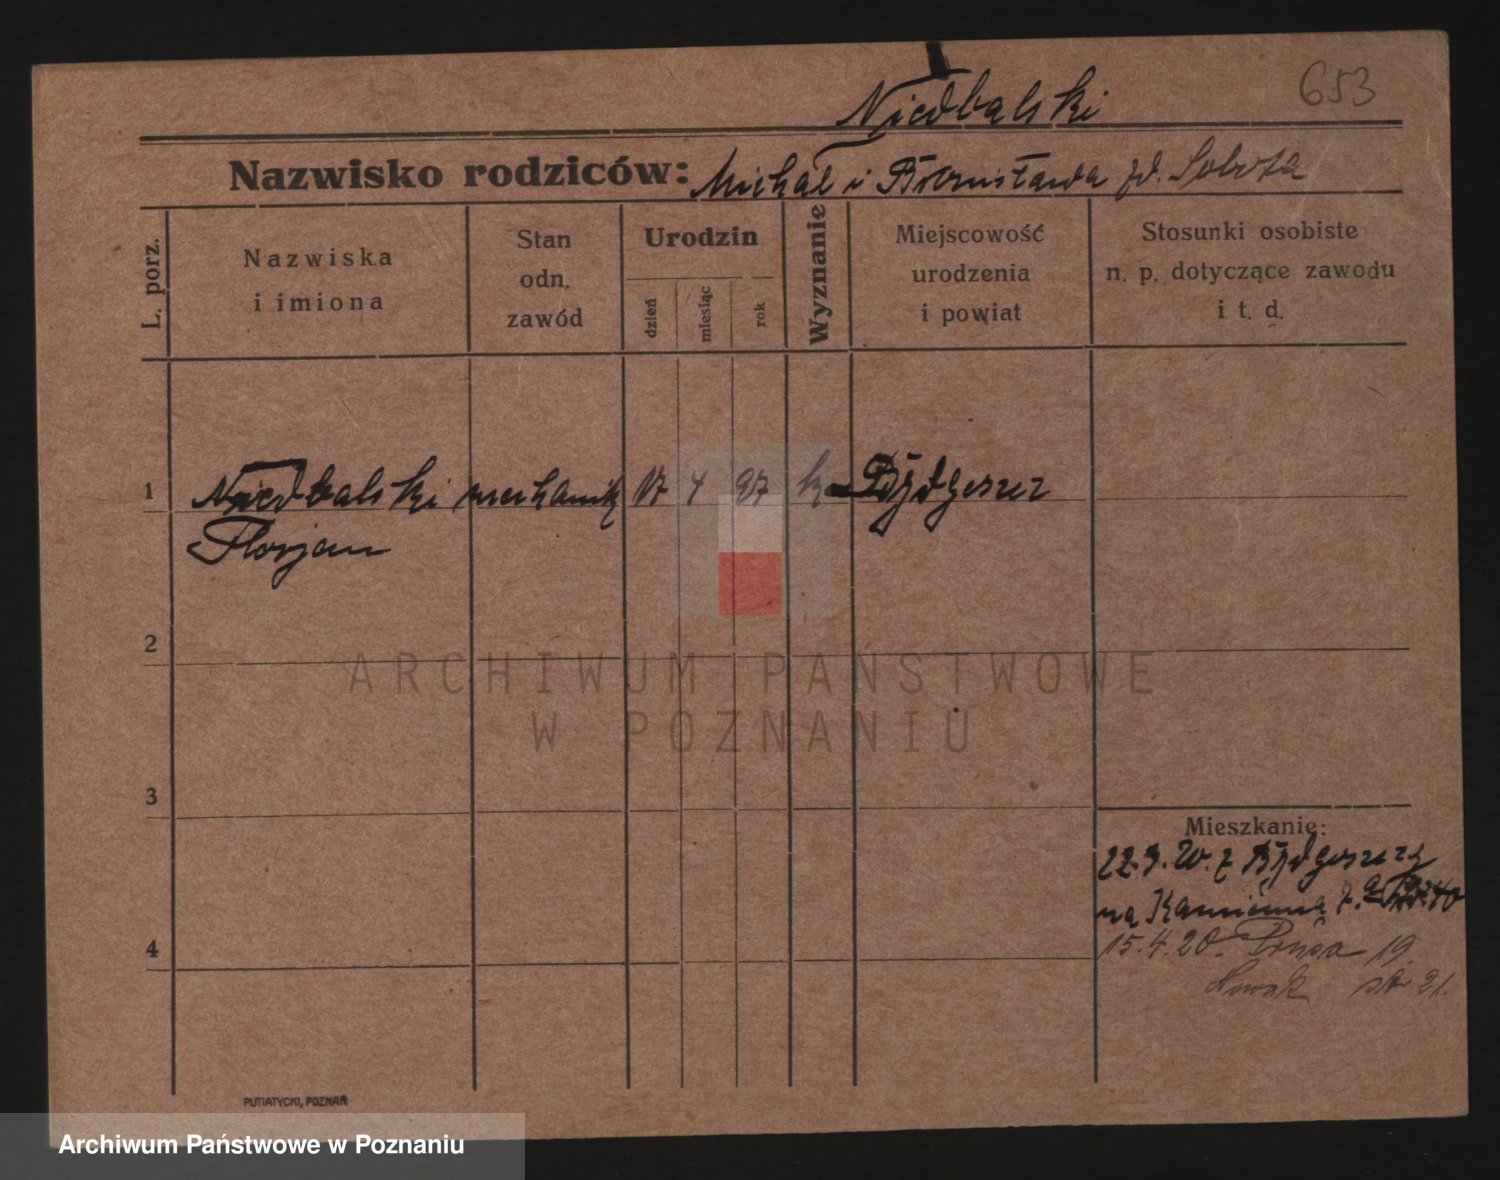 653
Niedbalski
Nazwisko rodziców: Michał i Bronisława zd. Sobota
L. porz.
Nazwiska
i imiona
Stan
odn.
zawód
Urodzin
dzień
miesiąc
rok
Wyznanie
Miejscowość
urodzenia
i powiat
Stosunki osobiste
n. p. dotyczące zawodu
i t. d.
1 Niedbalski mechanik 17 4 97 k Bydgoszcz
Florjan
2
3
4
Mieszkanie:
z Bydgoszczy
na
15.4.20. Prusa 19.
Nowak str. 21.
PUTIATYCKI, POZNAŃ
ARCHIWUM PAŃSTWOWE
W POZNANIU
Archiwum Państwowe w Poznaniu